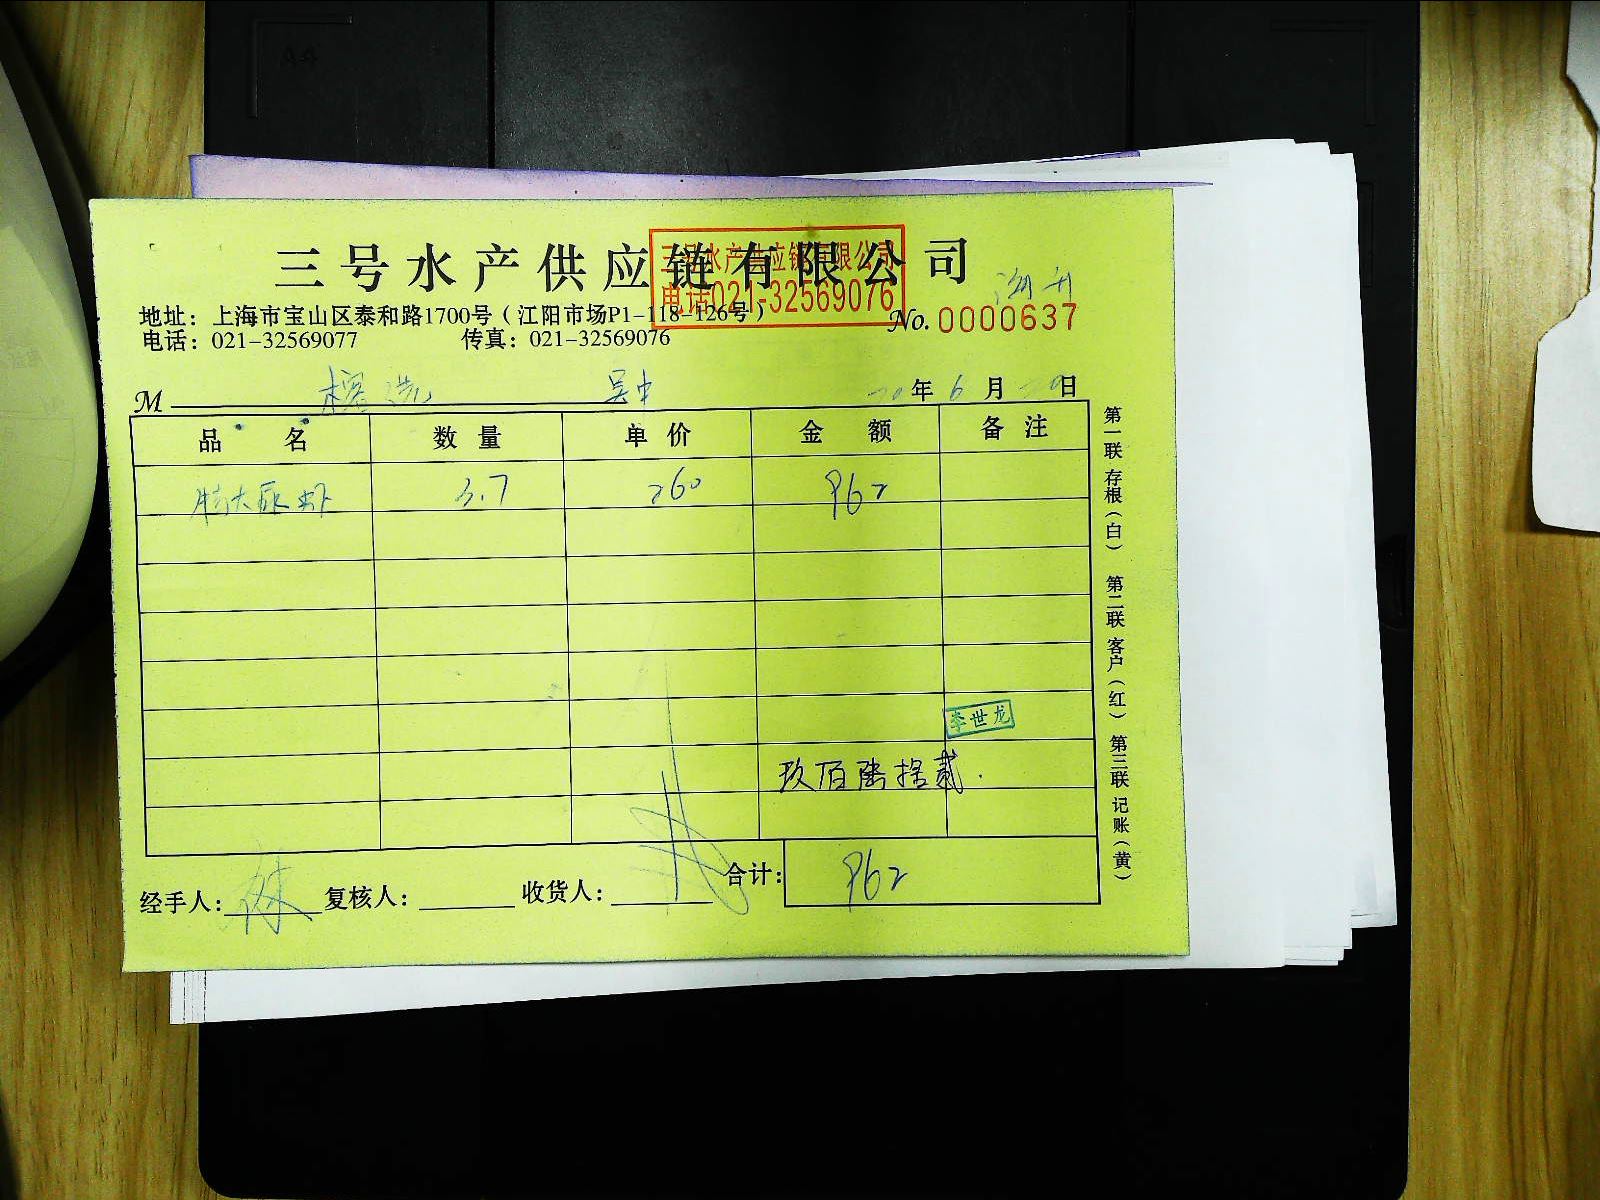 三号水产供应链有限公司
三号水产供应链有限公司
电话021-32569076
地址：上海市宝山区泰和路1700号（江阳市场P1-118-126号）
No. 0000637
电话：021-32569077 传真：021-32569076
M 榕选 吴中 20年6月29日
品名 数量 单价 金额 备注
特大尿虾 3.7 260 962
李世龙
玖佰陆拾贰
经手人： 复核人： 收货人： 合计： 962
第一联 存根（白） 第二联 客户（红） 第三联 记账（黄）